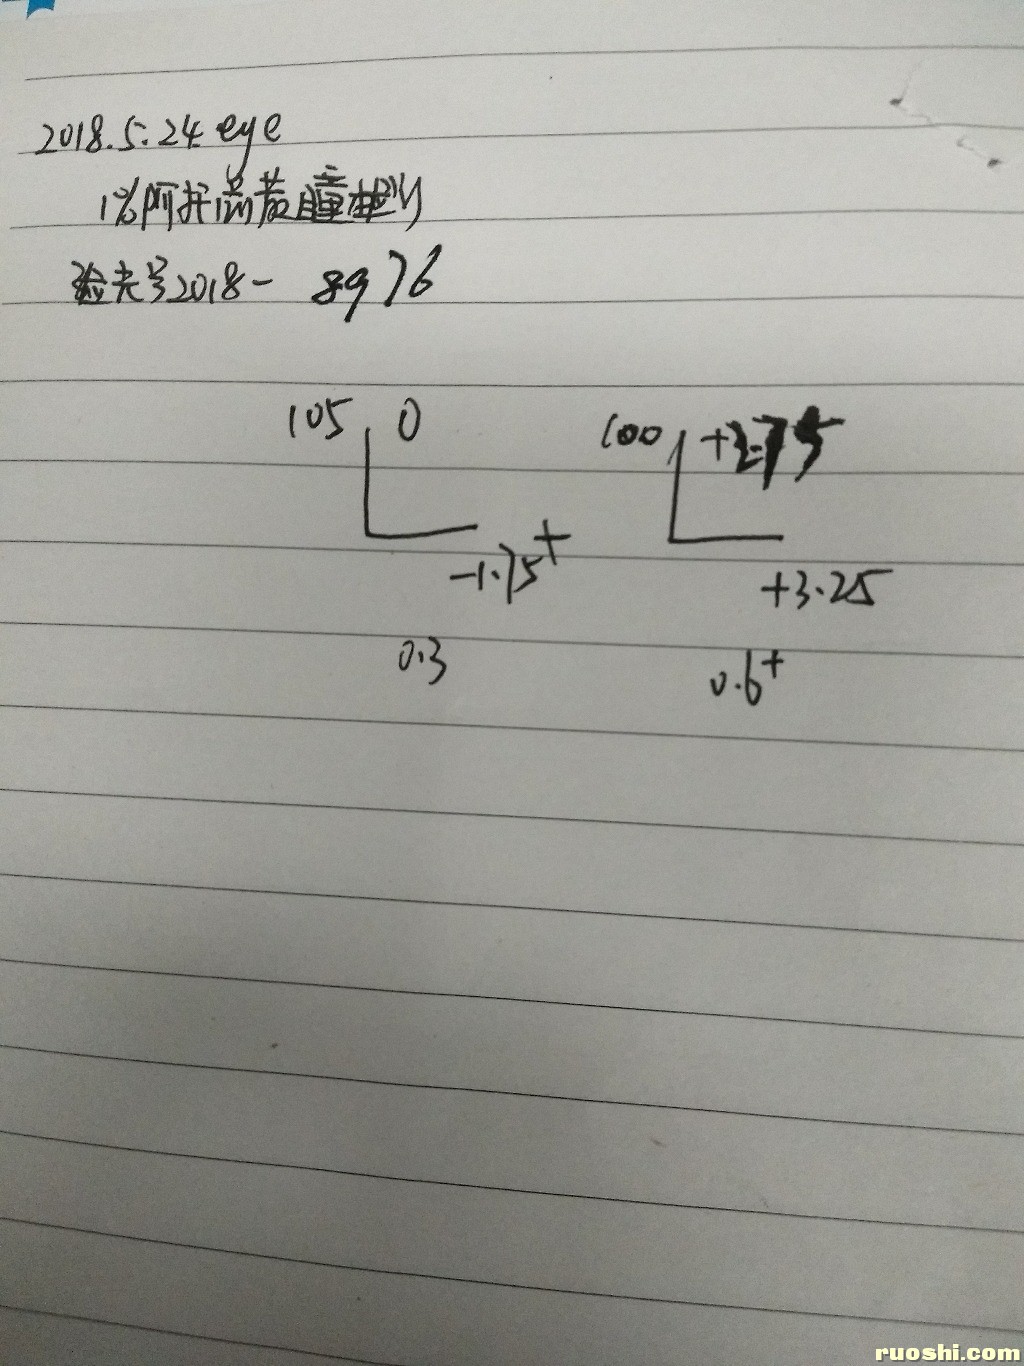 2018.5.24 eye
1%阿托品散瞳検影
验光号2018- 8976
105 0 100 +2.75
-1.75+ +3.25
0.3 0.6+
ruoshi.com